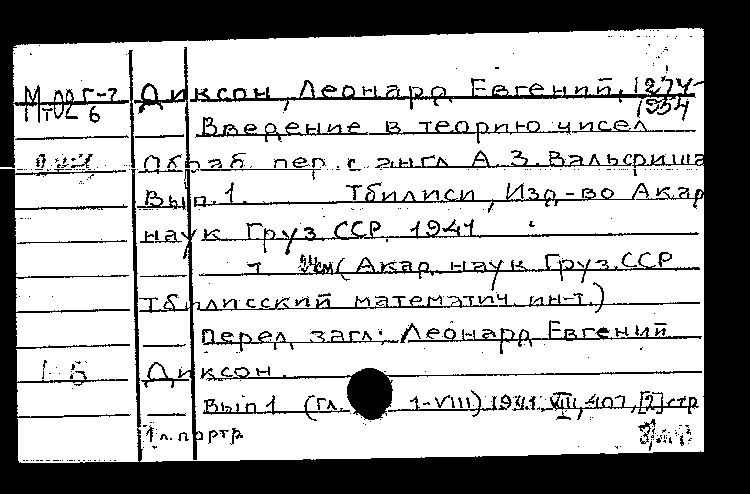 Мт02 Г-7/6 Диксон, Леонард Евгений, 1874-1954
Введение в теорию чисел
Обраб. пер. с англ А. З. Вальфиша
Вып. 1. Тбилиси, Изд-во Акад
наук Груз ССР, 1941
т 24см (Акад. наук Груз. ССР
Тбилисский математич. ин-т.)
Перед загл: Леонард Евгений
Диксон.
Вып 1 (Гл. 1-VIII) 1941. VIII, 407, [2] стр
1 л. портр